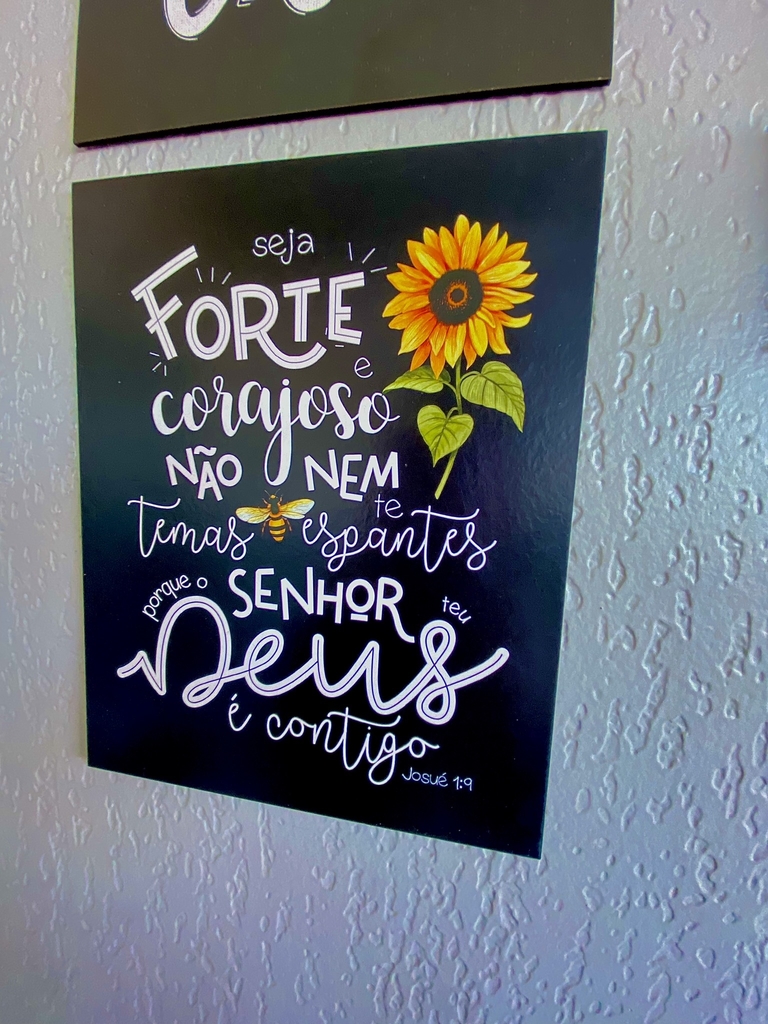 seja
FORTE
e
corajoso
NÃO NEM
temas te espantes
porque o SENHOR teu
Deus
é contigo
Josué 1:9